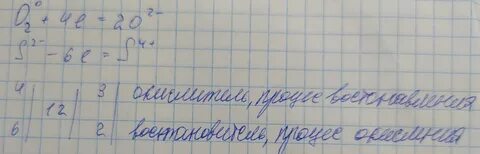 O₂⁰ + 4e = 2O²⁻
S²⁻ - 6e = S⁴⁺
4 | | 3 | окислитель, процес востонавления
| 12 |
6 | | 2 | востановитель, процес окисления